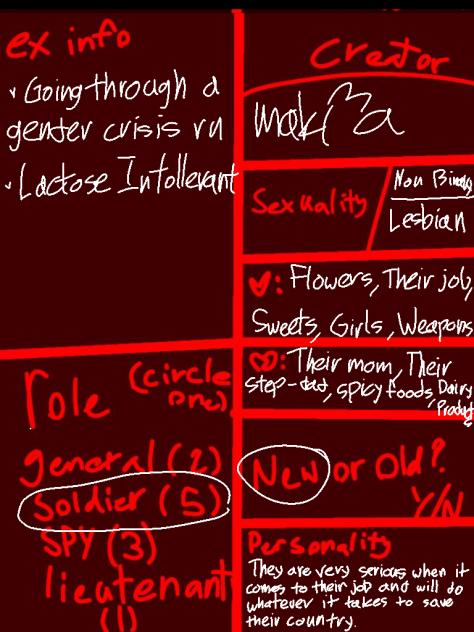 ex info
• Going through a
gender crisis rn
• Lactose Intollerant
Creator
makima
Sexuality
Non Binary
Lesbian
: Flowers, Their job,
Sweets, Girls, Weapons
: Their mom, Their
step-dad, spicy foods, Dairy
Products
role
(circle
one)
general (2)
Soldier (5)
SPY (3)
lieutenant
(1)
New or Old?
Y/N
Personality
They are very serious when it
comes to their job and will do
whatever it takes to save
their country.